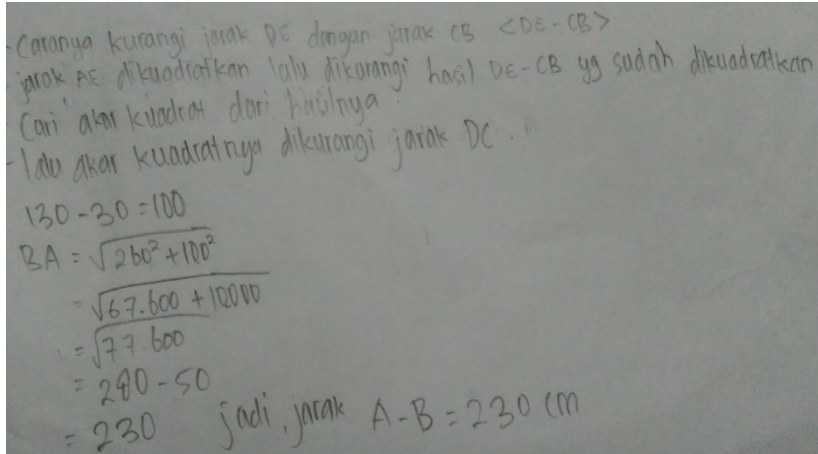 - Caranya kurangi jarak DE dengan jarak CB <DE-CB>
- jarak AE dikuadratkan lalu dikurangi hasil DE-CB yg sudah dikuadratkan
- Cari akar kuadrat dari hasilnya.
- lalu akar kuadratnya dikurangi jarak DC.
130 - 30 = 100
BA = √260² + 100²
= √67.600 + 10000
= √77.600
= 280 - 50
= 230 jadi, jarak A-B = 230 cm